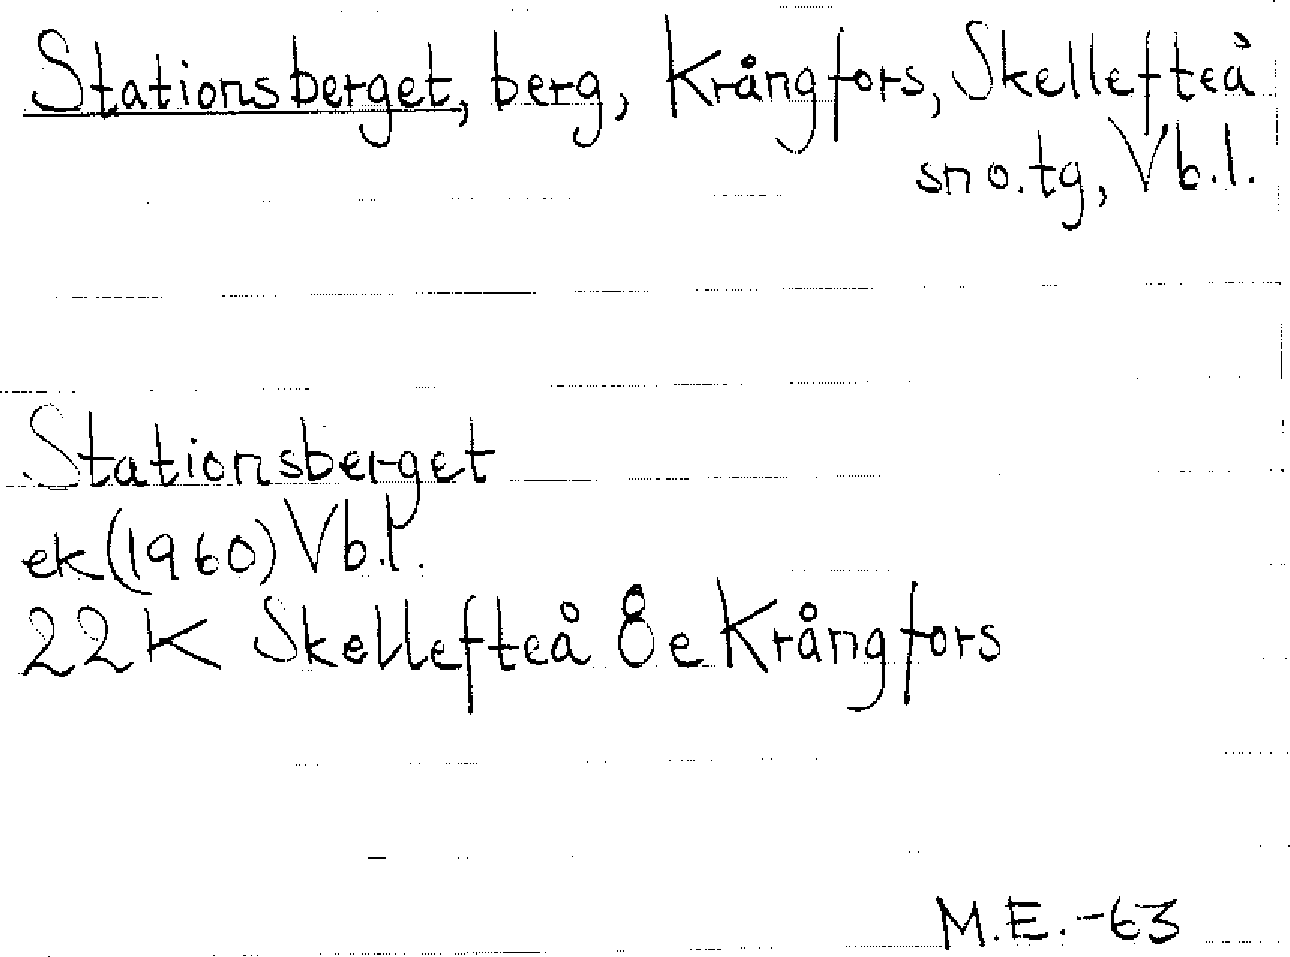 Stationsberget, berg, Krångfors, Skellefteå
sn o. tg, Vb.l.
Stationsberget
ek (1960) Vb.l.
22K Skellefteå 8e Krångfors
M.E. -63